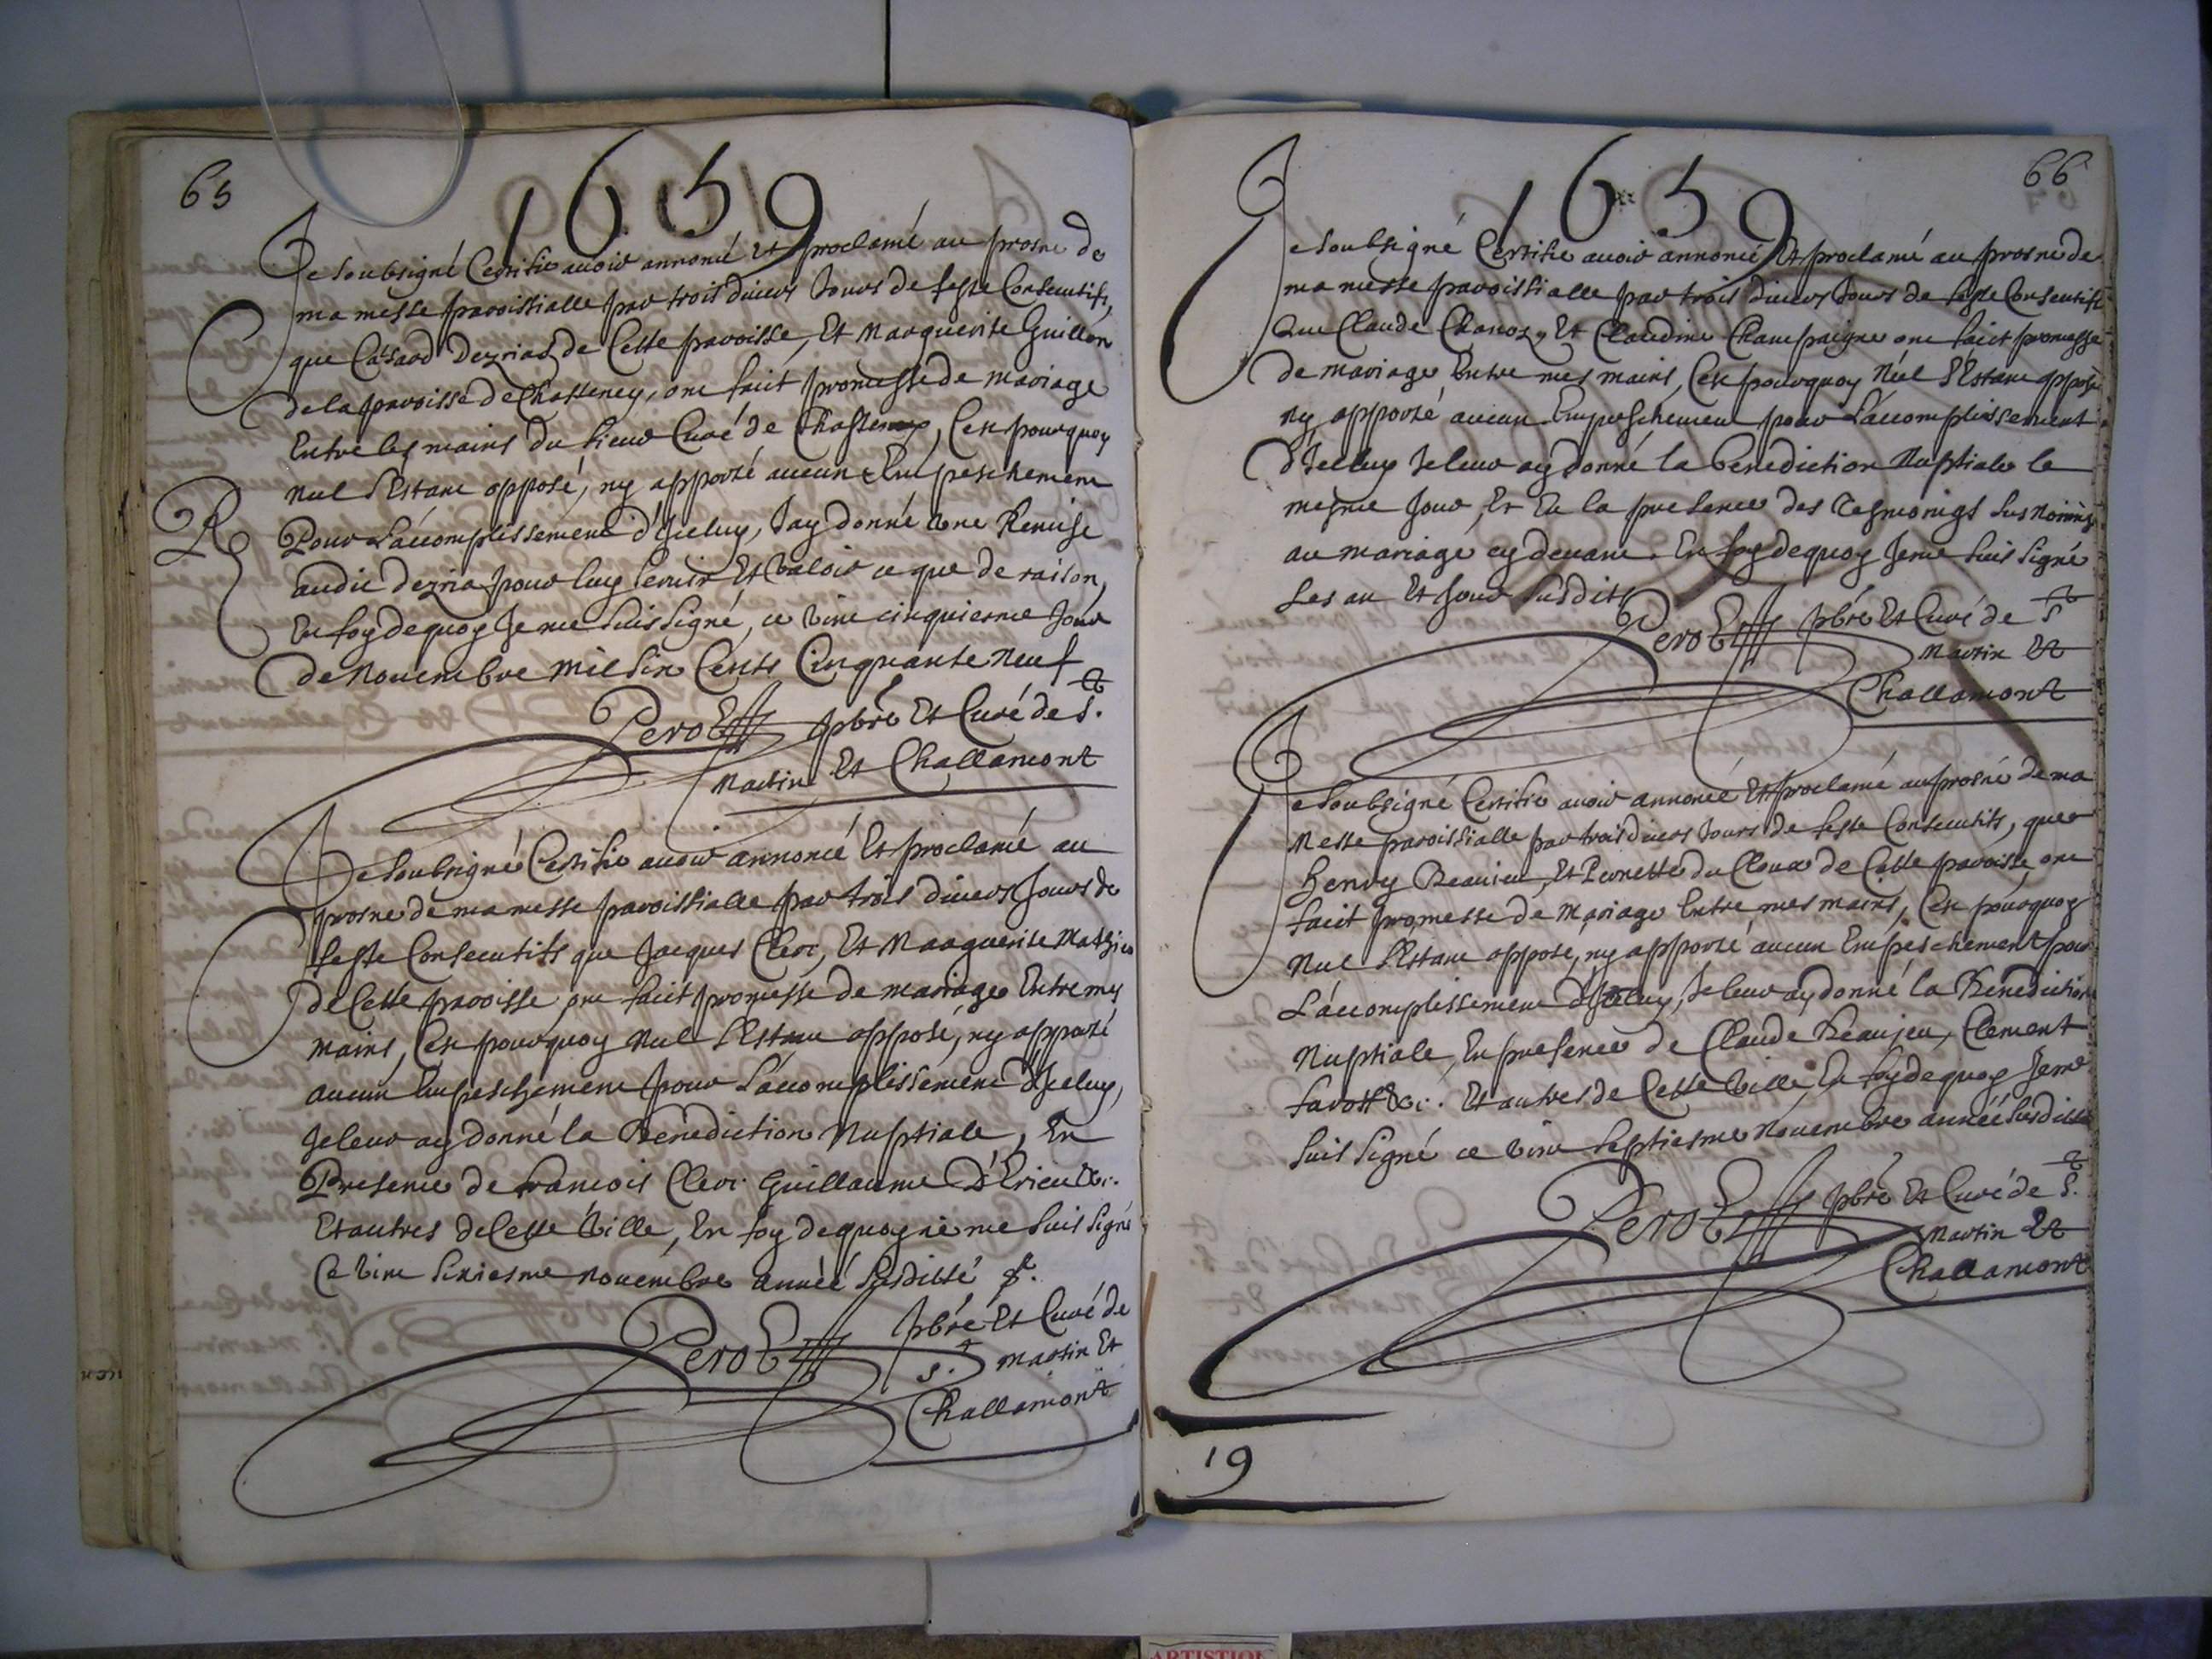 65
1659
Je Soubsigné Certifie auoir annoncé Et proclamé au prosne de
ma messe paroissialle par trois diuers Jours de feste Consecutifs,
que Dezrias de Cette paroisse, Et Marguerite Guillon
de la paroisse de Chasteney, ont faict promesse de mariage
Entre les mains du Sieur Curé de Chasteney, Cest pourquoy
Nul S'Estant opposé, ny apporté aucun Empeschement
R
Pour L'accomplissement d'Iceluy, J'ay donné Vne Remise
audit dezria pour luy Seruir Et Valoir ce que de raison,
En foy dequoy Je me Suis Signé, ce Vint cinquiesme Jour
de Nouembre Mil Six Cents Cinquante Neuf
Perot pbre Et Curé de S.t
Martin Et Challamont
Je Soubsigné Certifie auoir annoncé Et proclamé au
prosne de ma messe paroissialle par trois diuers Jours de
feste Consecutifs que Jacques Clerc, Et Marguerite Mathieu
de Cette paroisse ont faict promesse de mariage Entre mes
mains, Cest pourquoy Nul S'Estant opposé, ny apporté
aucun Empeschement pour L'accomplissement d'Iceluy,
Je leur ay donné la Benediction Nuptiale, En
Presence de francois Clerc. Guillaume D'Erieu &c.
Et autres de Cette Ville, En foy dequoy ie me Suis Signé
Ce Vint Sixiesme Nouembre année Susditte
Perot pbre Et Curé de
S.t Martin Et
Challamont
66
1659
Je Soubsigné Certifie auoir annoncé Et proclamé au prosne de
ma messe paroissialle par trois diuers Jours de feste Consecutifs
Que Claude Chanoz, Et Claudine Champaigne ont faict promesse
de mariage Entre mes mains, Cest pourquoy Nul S'Estant opposé
Ny apporté aucun Empeschement pour L'accomplissement
d'Iceluy Je leur ay donné la Benediction Nuptiale le
mesme Jour, Et En la presence des Tesmoings Susnommés
au mariage cy deuant. En foy dequoy Je me Suis Signé
Les an Et Jour Susdits
Perot pbre Et Curé de S.t
Martin Et
Challamont
Je Soubsigné Certifie auoir annoncé Et proclamé au prosne de ma
Messe paroissialle par trois diuers Jours de feste Consecutifs, que
Henry Beaujeu, Et Pernette du Cloux de Cette paroisse, ont
faict promesse de Mariage Entre mes mains, Cest pourquoy
Nul S'Estant opposé, ny apporté aucun Empeschement pour
L'accomplissement d'Iceluy, Je leur ay donné la Benediction
Nuptiale, En presence de Claude Beaujeu, Clement
&c. Et autres de Cette Ville, En foy dequoy Je me
Suis Signé ce Vint Septiesme Nouembre année Susditte
Perot pbre Et Curé de S.t
Martin Et
Challamont
19